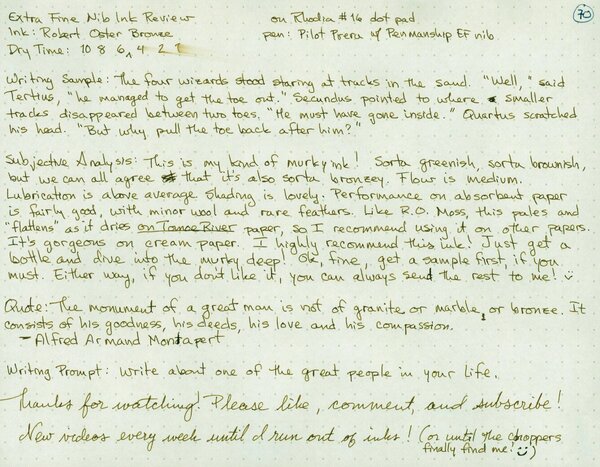 Extra Fine Nib Ink Review on Rhodia #16 dot pad 70
Ink: Robert Oster Bronze pen: Pilot Prera w/ Penmanship EF nib
Dry Time: 10 8 6 4 2 1
Writing Sample: The four wizards stood staring at tracks in the sand. "Well," said
Tertius, "he managed to get the toe out." Secundus pointed to where smaller
tracks disappeared between two toes. "He must have gone inside." Quartus scratched
his head. "But why pull the toe back after him?"
Subjective Analysis: This is my kind of murky ink! Sorta greenish, sorta brownish,
but we can all agree that it's also sorta bronzey. Flour is medium.
Lubrication is above average. Shading is lovely. Performance on absorbent paper
is fairly good, with minor wool and rare feathers. Like R.O. Moss, this pales and
"flattens" as it dries on Tomoe River paper, so I recommend using it on other papers.
It's gorgeous on cream paper. I highly recommend this ink! Just get a
bottle and dive into the murky deep! Ok, fine, get a sample first, if you
must. Either way, if you don't like it, you can always send the rest to me!
Quote: The monument of a great man is not of granite or marble or bronze. It
consists of his goodness, his deeds, his love and his compassion.
- Alfred Armand Montapert
Writing Prompt: Write about one of the great people in your life.
Thanks for watching! Please like, comment, and subscribe!
New videos every week until I run out of inks! (or until the choppers
finally find me!)